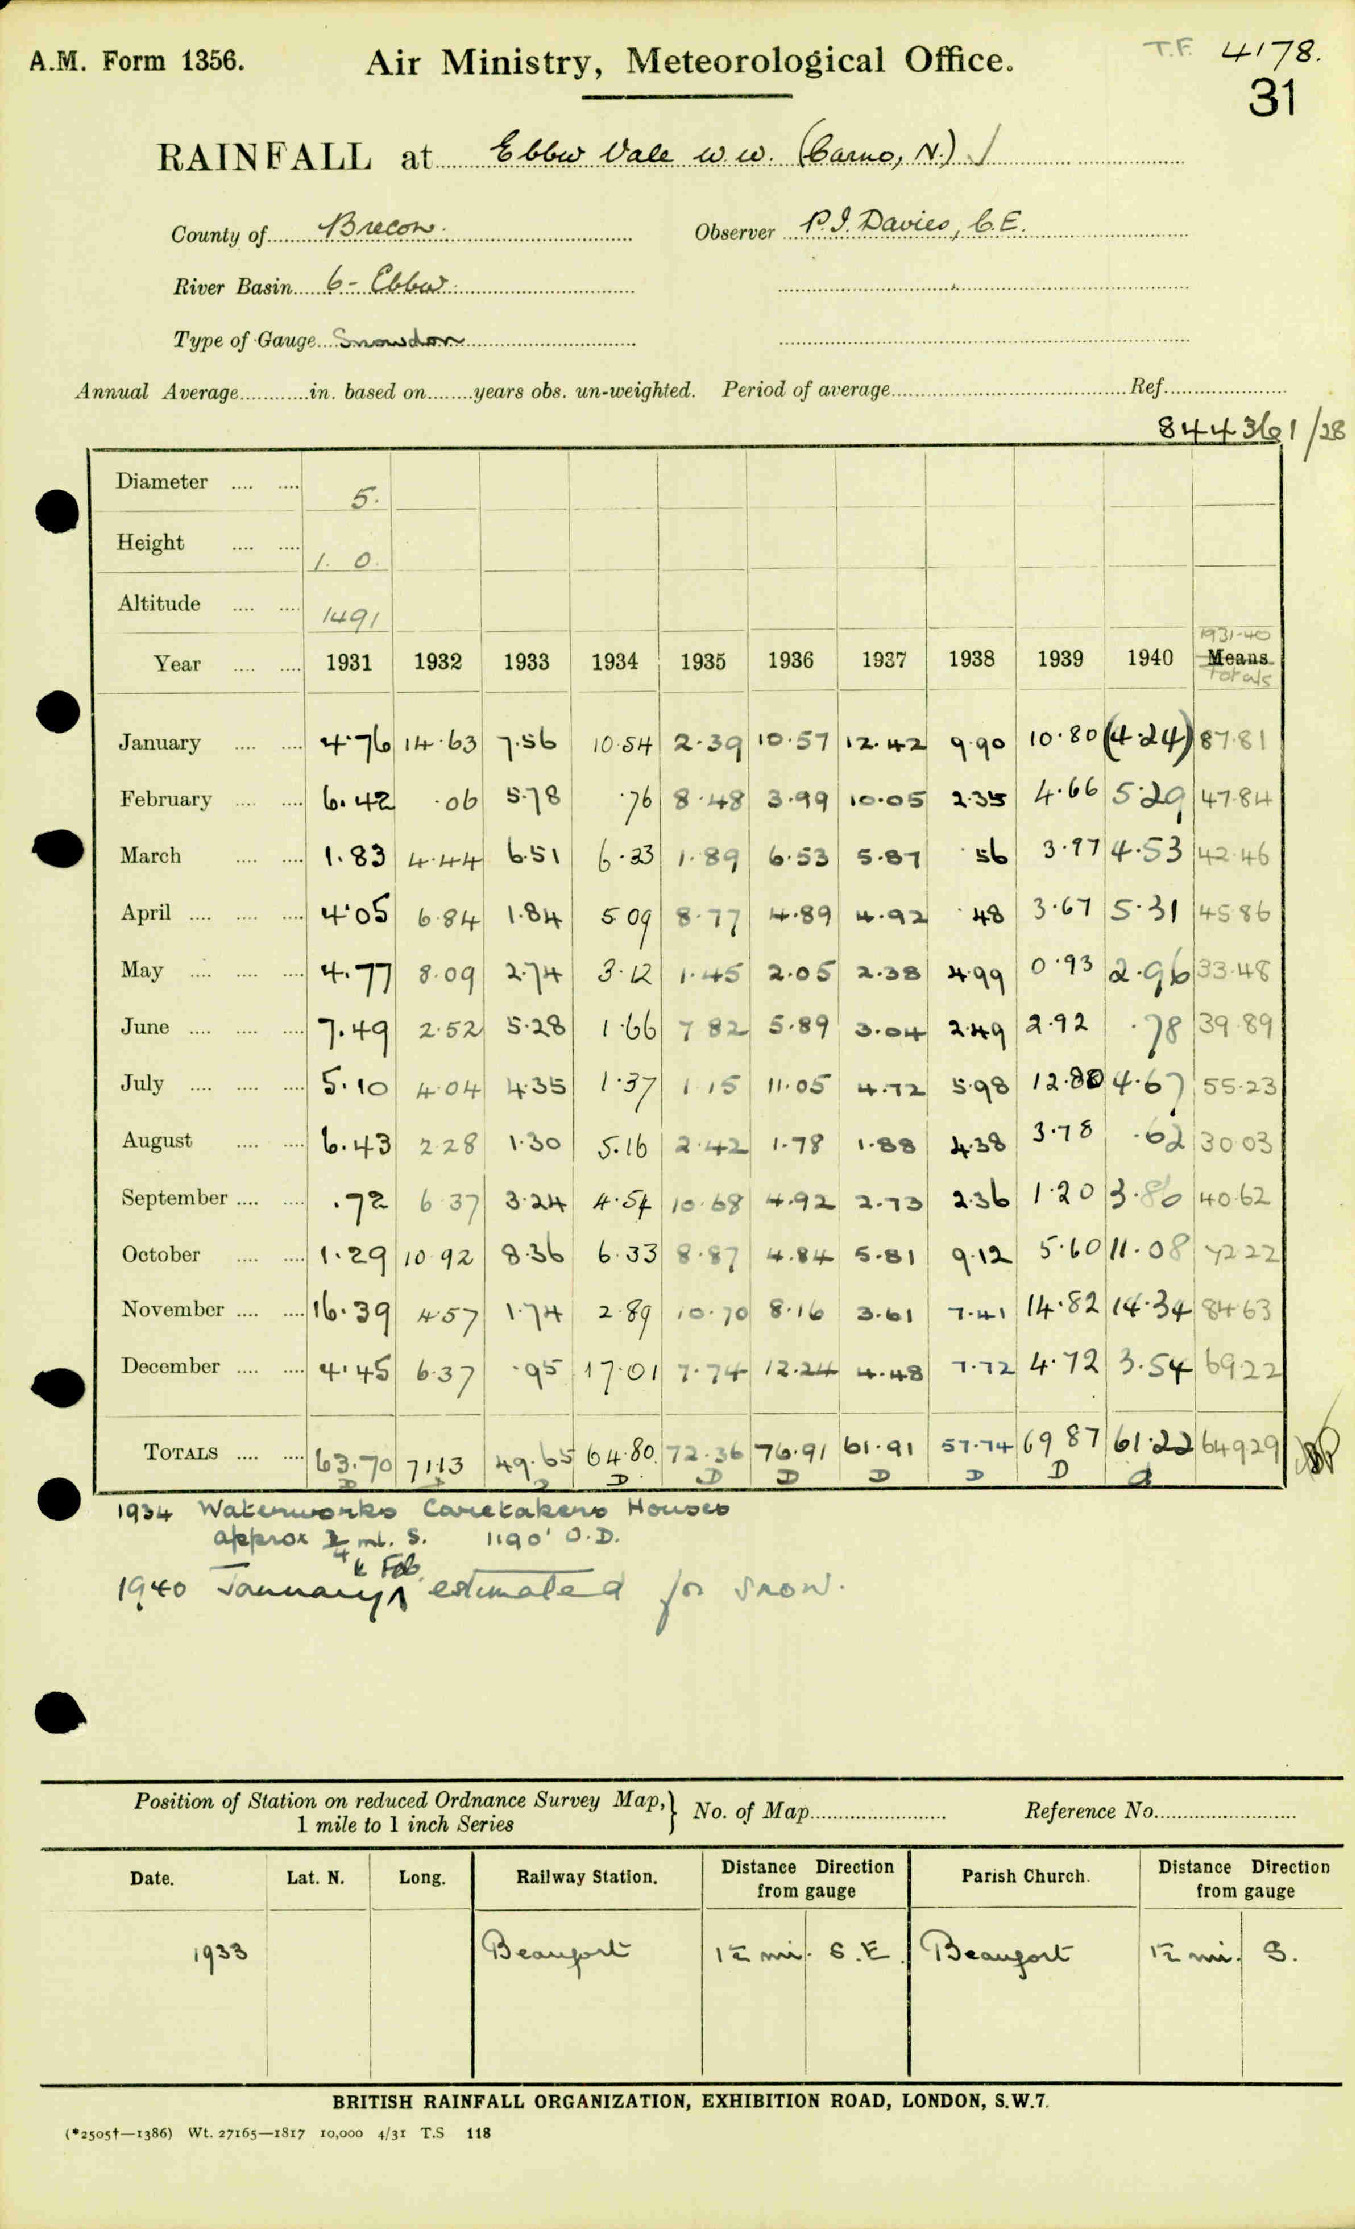 A.M. Form 1356.
Air Ministry, Meteorological Office.
T.F. 4178.
31
RAINFALL at Ebbw Vale W.W. (Carno, N.)
County of Brecon. Observer P.I. Davies, C.E.
River Basin 6 - Ebbw
Type of Gauge Snowdon
Annual Average in. based on years obs. un-weighted. Period of average Ref.
844361/28
Diameter 5.
Height 1. 0.
Altitude 1491
1931-40
Year 1931 1932 1933 1934 1935 1936 1937 1938 1939 1940 Means
Totals
January 4.76 14.63 7.56 10.54 2.39 10.57 12.42 9.90 10.80 (4.24) 87.81
February 6.42 .06 5.78 .76 8.48 3.99 10.05 2.35 4.66 5.29 47.84
March 1.83 4.44 6.51 6.33 1.89 6.53 5.87 .56 3.97 4.53 42.46
April 4.05 6.84 1.84 5.09 8.77 4.89 4.92 .48 3.67 5.31 45.86
May 4.77 8.09 2.74 3.12 1.45 2.05 2.38 4.99 0.93 2.96 33.48
June 7.49 2.52 5.28 1.66 7.82 5.89 3.04 2.49 2.92 .78 39.89
July 5.10 4.04 4.35 1.37 1.15 11.05 4.72 5.98 12.80 4.67 55.23
August 6.43 2.28 1.30 5.16 2.42 1.78 1.88 4.38 3.78 .62 30.03
September .72 6.37 3.24 4.54 10.68 4.92 2.73 2.36 1.20 3.86 40.62
October 1.29 10.92 8.36 6.33 8.87 4.84 5.81 9.12 5.60 11.08 72.22
November 16.39 4.57 1.74 2.89 10.70 8.16 3.61 7.41 14.82 14.34 84.63
December 4.45 6.37 .95 17.01 7.74 12.24 4.48 7.72 4.72 3.54 69.22
TOTALS 63.70 71.13 49.65 64.80 72.36 76.91 61.91 57.74 69.87 61.22 649.29
D D D D D D D D D d
1934 Waterworks Caretakers Houses
approx 3/4 ml. S. 1190' O.D.
& Feb.
1940 January estimated for snow.
Position of Station on reduced Ordnance Survey Map, } No. of Map Reference No.
1 mile to 1 inch Series
Date. Lat. N. Long. Railway Station. Distance Direction from gauge Parish Church. Distance Direction from gauge
1933 Beaufort 1½ mi. S.E. Beaufort 1½ mi. S.
BRITISH RAINFALL ORGANIZATION, EXHIBITION ROAD, LONDON, S.W.7.
(*2505†—1386) Wt. 27165—1817 10,000 4/31 T.S 118